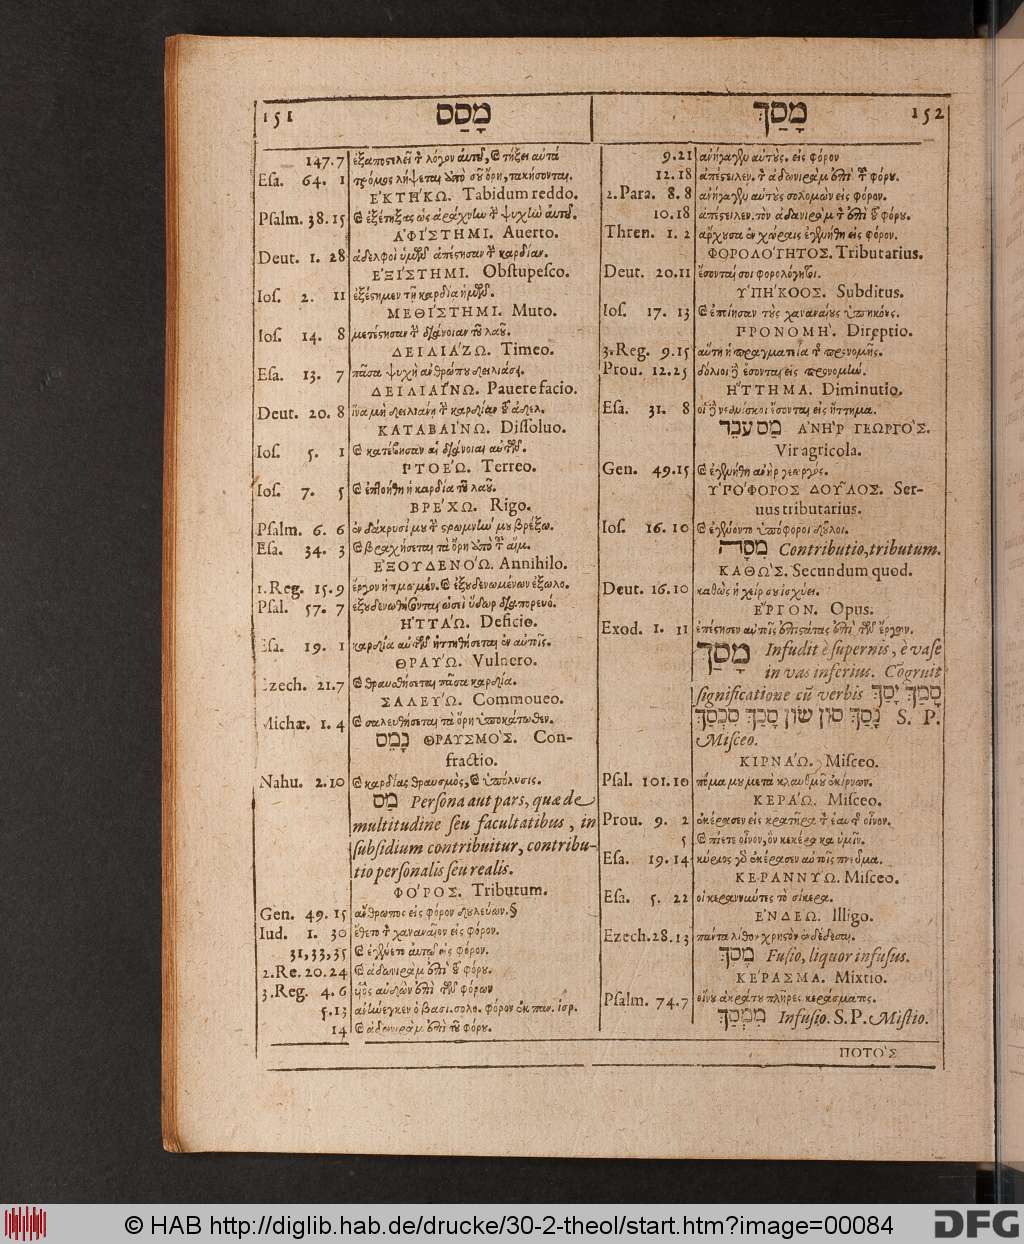 151 מָסַס
147.7 ἐξαποστελεῖ τ λόγον αὐτοῦ, καὶ τήξει αὐτὰ
Esa. 64. 1 τρόμος λήψεται ἀπὸ σοῦ ὄρη, τακήσονται.
ἘΚΤΗΚΩ. Tabidum reddo.
Psalm. 38.15 καὶ ἐξέτηξας ὡς ἀράχνην τ ψυχὴν αὐτοῦ.
ἈΦΙΣΤΗΜΙ. Auerto.
Deut. 1. 28 ἀδελφοὶ ὑμῶν ἀπέστησαν τ καρδίαν.
ἘΞΙΣΤΗΜΙ. Obstupesco.
Ios. 2. 11 ἐξέστημεν τῇ καρδίᾳ ἡμῶν.
ΜΕΘΙΣΤΗΜΙ. Muto.
Ios. 14. 8 μετέστησαν τ διάνοιαν τοῦ λαοῦ.
ΔΕΙΛΙΑΖΩ. Timeo.
Esa. 13. 7 πᾶσα ψυχὴ ἀνθρώπου δειλιάσει.
ΔΕΙΛΙΑΙΝΩ. Pauere facio.
Deut. 20. 8 ἵνα μὴ δειλιαίνῃ τ καρδίαν τοῦ ἀδελ.
ΚΑΤΑΒΑΙΝΩ. Dissoluo.
Ios. 5. 1 καὶ κατέβησαν αἱ διάνοιαι αὐτῶν.
ΠΤΟΕΩ. Terreo.
Ios. 7. 5 καὶ ἐπτοήθη ἡ καρδία τοῦ λαοῦ.
ΒΡΕΧΩ. Rigo.
Psalm. 6. 6 ἐν δάκρυσί μου τ στρωμνήν μου βρέξω.
Esa. 34. 3 καὶ βραχήσεται τὰ ὄρη ἀπὸ τ αἵμ.
ἘΞΟΥΔΕΝΟΩ. Annihilo.
1. Reg. 15.9 ἔργον ἠτιμωμέν. καὶ ἐξουδενωμένων ἐξωλο.
Psal. 57. 7 ἐξουδενωθήσονται ὡσεὶ ὕδωρ διαπορευό.
ἩΤΤΑΩ. Deficio.
Esa. 19. 1 καρδία αὐτῶν ἡττηθήσεται ἐν αὐτοῖς.
ΘΡΑΥΩ. Vulnero.
Ezech. 21.7 καὶ θραυσθήσεται πᾶσα καρδία.
ΣΑΛΕΥΩ. Commoueo.
Michæ. 1. 4 καὶ σαλευθήσεται τὰ ὄρη ὑποκάτωθεν.
נָמֵס ΘΡΑΥΣΜΟΣ. Con-
fractio.
Nahu. 2.10 καὶ καρδίας θραυσμὸς, καὶ ὑπόλυσις.
מַס Persona aut pars, quæ de
multitudine seu facultatibus, in
subsidium contribuitur, contribu-
tio personalis seu realis.
ΦΟΡΟΣ. Tributum.
Gen. 49. 15 ἄνθρωπος εἰς φόρον δουλεύων.§
Iud. 1. 30 ἔθετο τ χαναναῖον εἰς φόρον.
31,33,35 καὶ ἐγένετο αὐτῷ εἰς φόρον.
2. Re. 20.24 καὶ ἀδωνιρὰμ ἐπὶ τοῦ φόρου.
3. Reg. 4. 6 υἱὸς αὐδὼν ἐπὶ τῶν φόρων
5.13 ἀνήνεγκεν ὁ βασι. σολο. φόρον ἐκ παν. ἰσρ.
14 καὶ ἀδωνιρὰμ ἐπὶ τοῦ φόρου.
מָסַךְ 152
9.21 ἀνήγαγεν αὐτοὺς. εἰς φόρον
12.18 ἀπέστειλεν. τ ἀδωνιρὰμ ἐπὶ τοῦ φόρου.
2. Para. 8. 8 ἀνήγαγεν αὐτοὺς σολομὼν εἰς φόρον.
10.18 ἀπέστειλεν. τὸν ἀδωνιρὰμ τ ἐπὶ τοῦ φόρου.
Thren. 1. 2 ἄρχουσα ἐν χώραις ἐγενήθη εἰς φόρον.
ΦΟΡΟΛΟΓΗΤΟΣ. Tributarius.
Deut. 20.11 ἔσονταί σοι φορολόγητοι.
ὙΠΗΚΟΟΣ. Subditus.
Ios. 17. 13 καὶ ἐποίησαν τοὺς χαναναίους ὑπηκόους.
ΠΡΟΝΟΜΗ. Direptio.
3. Reg. 9.15 αὕτη ἡ πραγματεία τ προνομῆς.
Prou. 12.25 δόλιοι δὲ ἔσονται εἰς προνομήν.
ἭΤΤΗΜΑ. Diminutio.
Esa. 31. 8 οἱ δὲ νεανίσκοι ἔσονται εἰς ἥττημα.
מַס עֹבֵר ἈΝΗΡ ΓΕΩΡΓΟΣ.
Vir agricola.
Gen. 49.15 καὶ ἐγενήθη ἀνὴρ γεωργός.
ὙΠΟΦΟΡΟΣ ΔΟΥΛΟΣ. Ser-
uus tributarius.
Ios. 16. 10 καὶ ἐγένοντο ὑπόφοροι δοῦλοι.
מִסָּה Contributio, tributum.
ΚΑΘΩΣ. Secundum quod.
Deut. 16.10 καθὼς ἡ χείρ σου ἰσχύει.
ἜΡΓΟΝ. Opus.
Exod. 1. 11 ἐπέστησεν αὐτοῖς ἐπιστάτας ἐπὶ τῶν ἔργων.
מָסַךְ Infudit è supernis, è vase
in vas inferius. Cõgruit
significatione cũ verbis סָמַךְ יָסַךְ
נָסַךְ סוּךְ שׂוּךְ סָכַךְ סִכְסֵךְ S. P.
Misceo.
ΚΙΡΝΑΩ. Misceo.
Psal. 101.10 πόμα μου μετὰ κλαυθμοῦ ἐκίρνων.
ΚΕΡΑΩ. Misceo.
Prou. 9. 2 ἐκέρασεν εἰς κρατῆρα τ ἑαυτ οἶνον.
5 καὶ πίετε οἶνον, ὃν κεκέρακα ὑμῖν.
Esa. 19. 14 κύριος γὰρ ἐκέρασεν αὐτοῖς πνεῦμα.
ΚΕΡΑΝΝΥΩ. Misceo.
Esa. 5. 22 οἱ κεραννύντες τὸ σίκερα.
ἘΝΔΕΩ. Illigo.
Ezech. 28. 13 πάντα λίθον χρηστὸν ἐνδέδεσαι.
מֶסֶךְ Fusio, liquor infusus.
ΚΕΡΑΣΜΑ. Mixtio.
Psalm. 74.7 οἴνου ἀκράτου πλῆρες κεράσματος.
מִמְסָךְ Infusio. S. P. Mistio.
ΠΟΤΟΣ
© HAB http://diglib.hab.de/drucke/30-2-theol/start.htm?image=00084
DFG